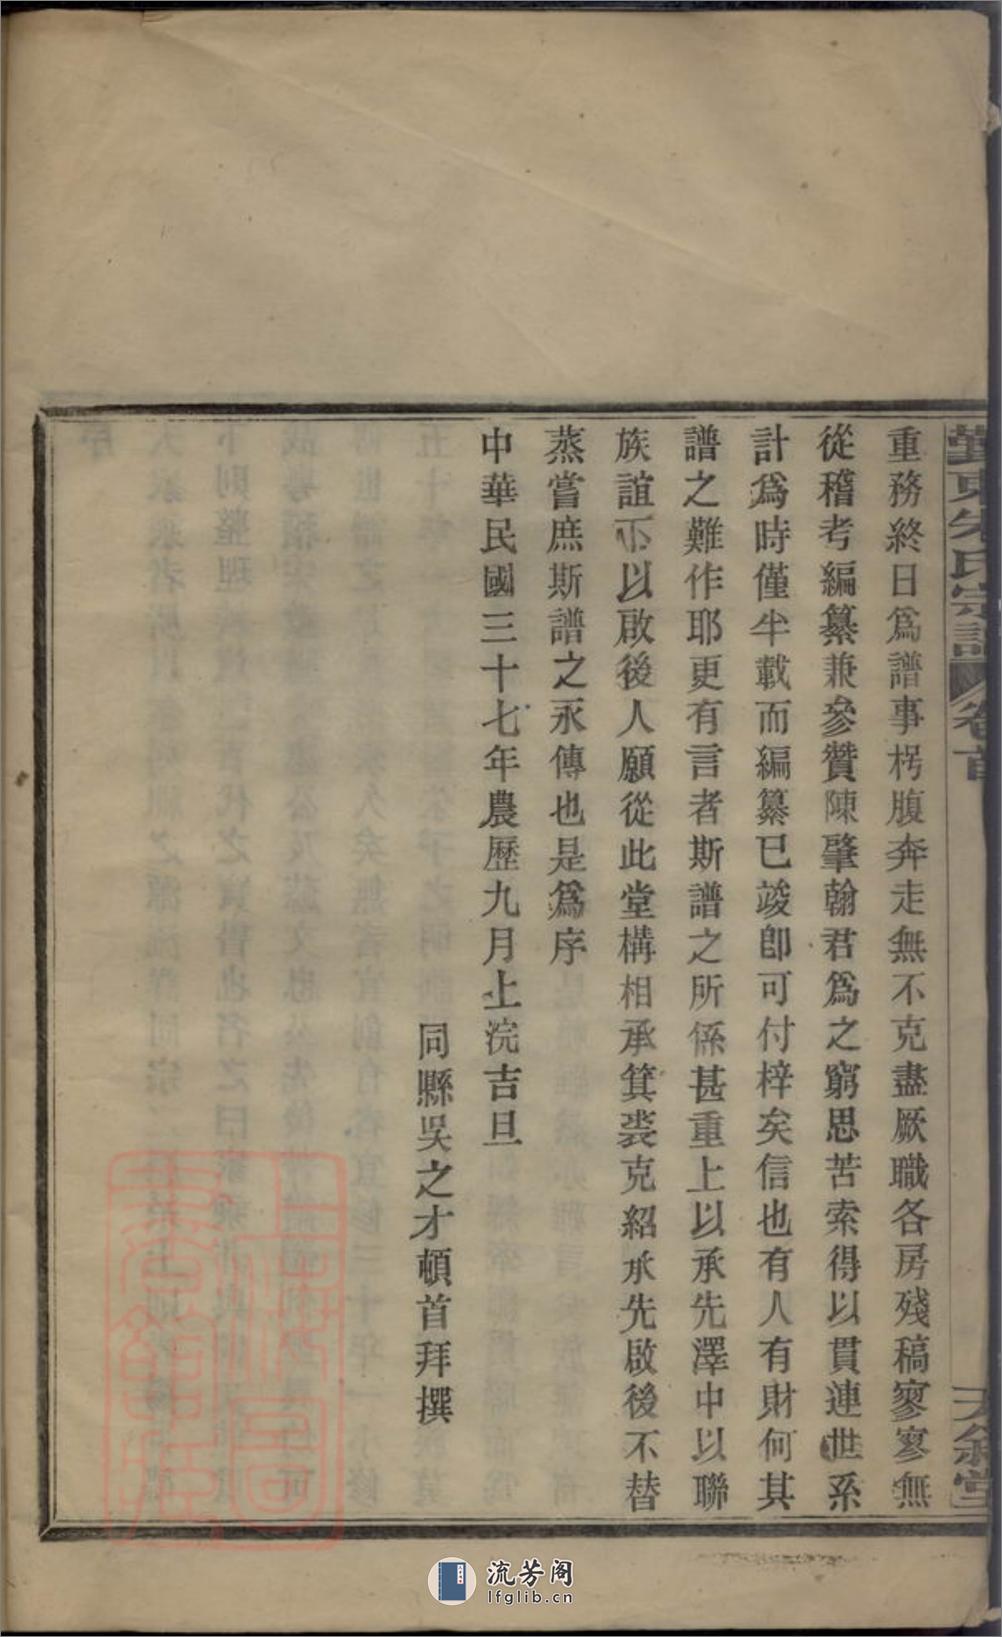 東朱氏宗譜 卷首
敘堂
重務終日爲譜事枵腹奔走無不克盡厥職各房殘稿寥寥無
從稽考編纂兼參贊陳肇翰君爲之窮思苦索得以貫連世系
計爲時僅半載而編纂已竣卽可付梓矣信也有人有財何其
譜之難作耶更有言者斯譜之所係甚重上以承先澤中以聯
族誼下以啟後人願從此堂構相承箕裘克紹承先啟後不替
蒸嘗庶斯譜之永傳也是爲序
中華民國三十七年農歷九月上浣吉旦
同縣吳之才頓首拜撰
流芳阁
lfglib.cn